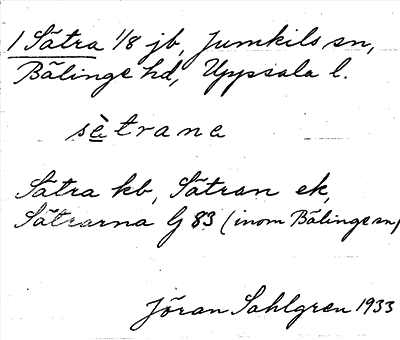 1 Sätra 1/8 jb, Jumkils sn,
Bälinge hd, Uppsala l.
sètrana
Sätra kb, Sätran ek,
Sätrarna G 83 (inom Bälinge sn)
Jöran Sahlgren 1933